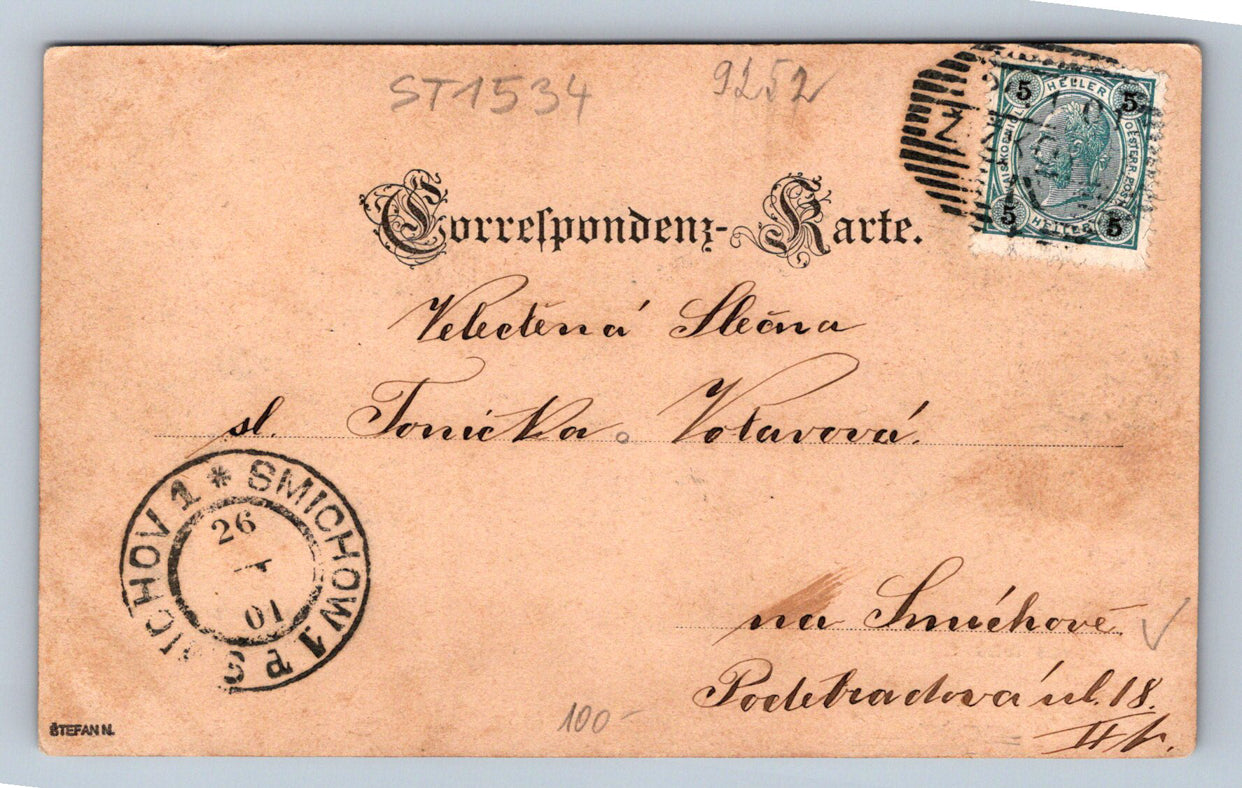 ST1534 9252
5 HELLER 5
5 HELLER 5
Correspondenz-Karte.
Veledená Slečna
sl. Tonička Votavová.
SMICHOW 1 * SMICHOV 1
26
01
na Smíchově
Poděbradova ul. 18.
100-
ŠTEFAN N.